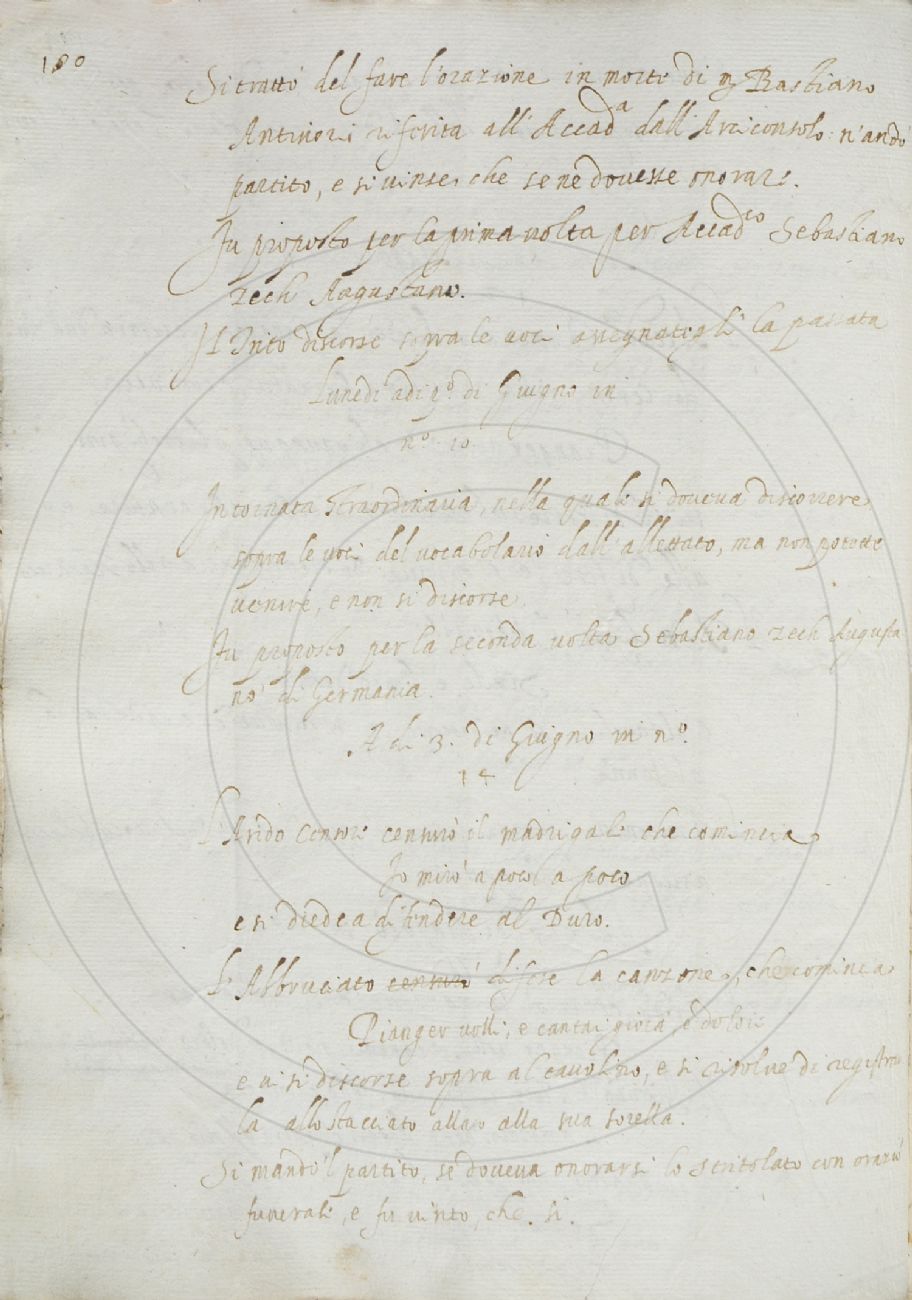 180
Si trattò del fare l'orazione in morte di m Bastiano
Antinori riferita all' Accad.a dall' Arciconsolo: n'andò
partito, e si vinse, che se ne dovesse onorare.
Fu proposto per la prima volta per Accad.co Sebastiano
zech Augustano.
Il Into discorse sopra le voci assegnategli la passata
Lunedì adi p.o di Giugno in
n.o 10
In tornata straordinaria, nella quale si doveva discorrere
sopra le voci del vocabolario dall' allettato, ma non potette
venire, e non si discorse.
Fu proposto per la seconda volta Sebastiano zech Augusta
no di Germania.
A di 3. di Giugno in n.o
14
L'Arido Censore censurò il madrigale che comincia,
Io miro a poco a poco
e si diede a difendere al Duro.
L'Abbruciato censurò difese la canzone, che comincia
Pianger volli, e cantai gioia, e dolore
e vi si discorse sopra al tavolino, e si risolve di registrar
la allo stacciato allato alla sua sorella.
Si mandò'l partito, se doveva onorarsi lo Stritolato con orazio
funerale, e fu vinto, che. sì.